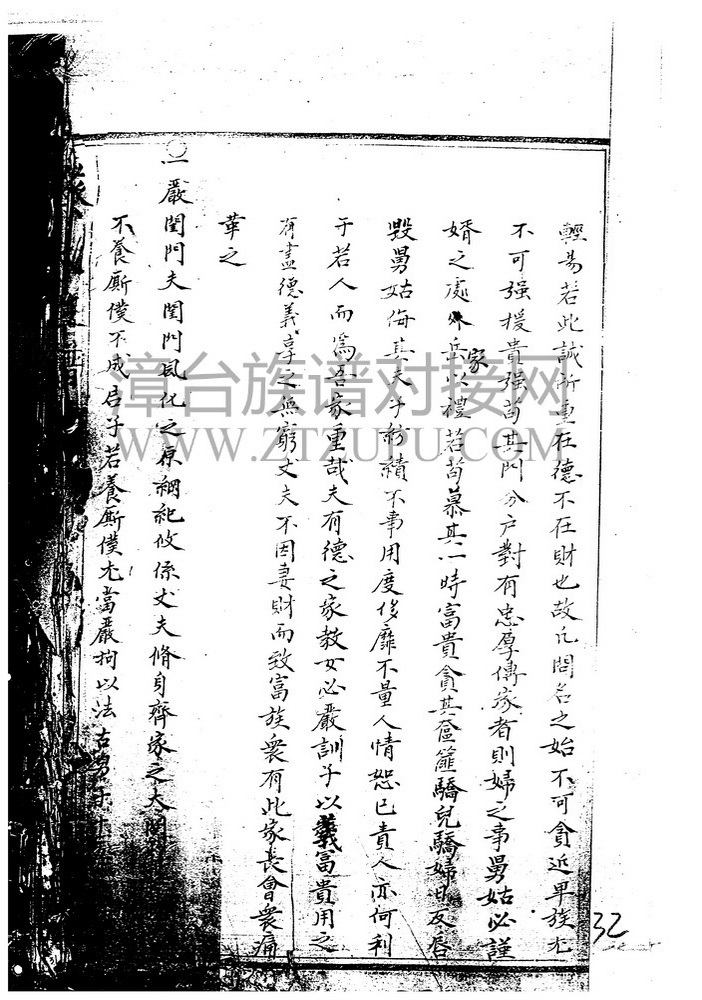 輕易若此誠所重在德不在財也故凡問名之始不可貪近卑族尤
不可强援貴强苟其門分户對有忠厚傳家者則婦之事舅姑必謹
婿之處外岳家以禮若苟慕其一時富貴貪其奩篚驕兒驕婦日反唇
毀舅姑侮其夫子紡績不事用度侈靡不量人情恕已責人亦何利
于若人而為吾家重哉夫有德之家教女必嚴訓子以義富貴用之
有盡德義享之無窮丈夫不因妻財而致富族衆有此家長會衆痛
革之
一嚴閨門夫閨門風化之原綱紀攸係丈夫脩身齊家之大
不養厮僕不成君子若養厮僕尤當嚴拘以法古男子
漳台族谱对接网
WWW.ZTZUPU.COM
32